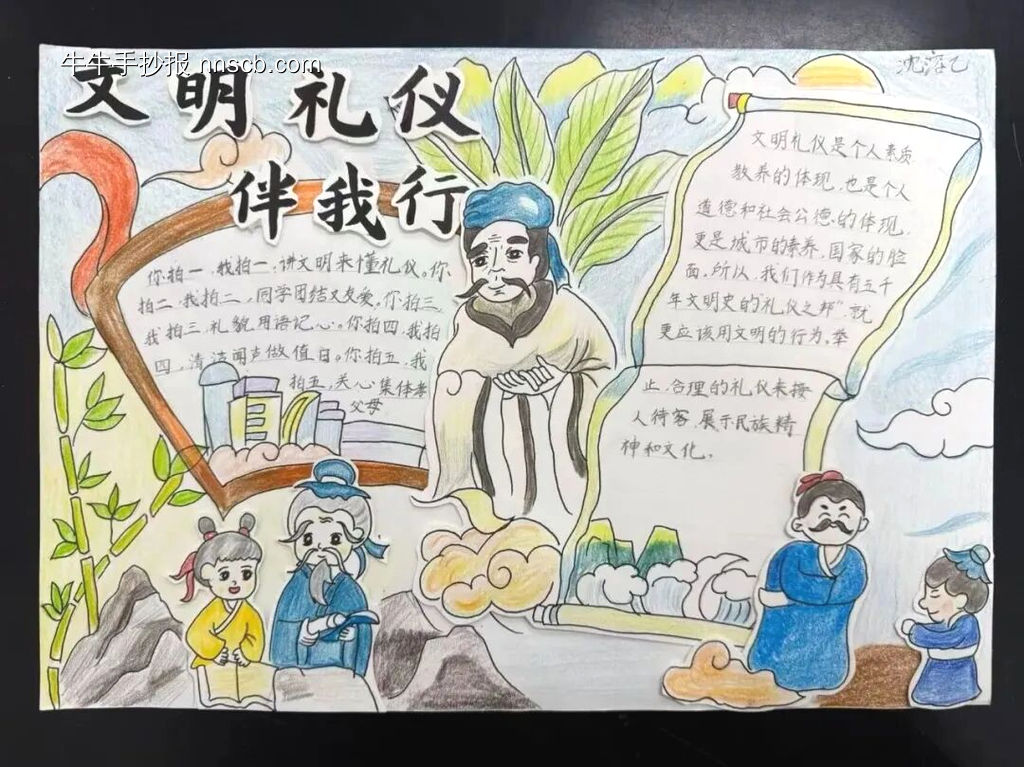 牛牛手抄报 nnscb.com
文明礼仪
伴我行
沈淳乙
你拍一,我拍一,讲文明来懂礼仪。你
拍二,我拍二,同学团结又友爱。你拍三,
我拍三,礼貌用语记心。你拍四,我拍
四,清洁闻声做值日。你拍五,我
拍五,关心集体孝
父母
文明礼仪是个人素质
教养的体现,也是个人
道德和社会公德的体现,
更是城市的素养,国家的脸
面,所以,我们作为具有五千
年文明史的"礼仪之邦",就
更应该用文明的行为,举
止,合理的礼仪来接
人待客,展示民族精
神和文化。